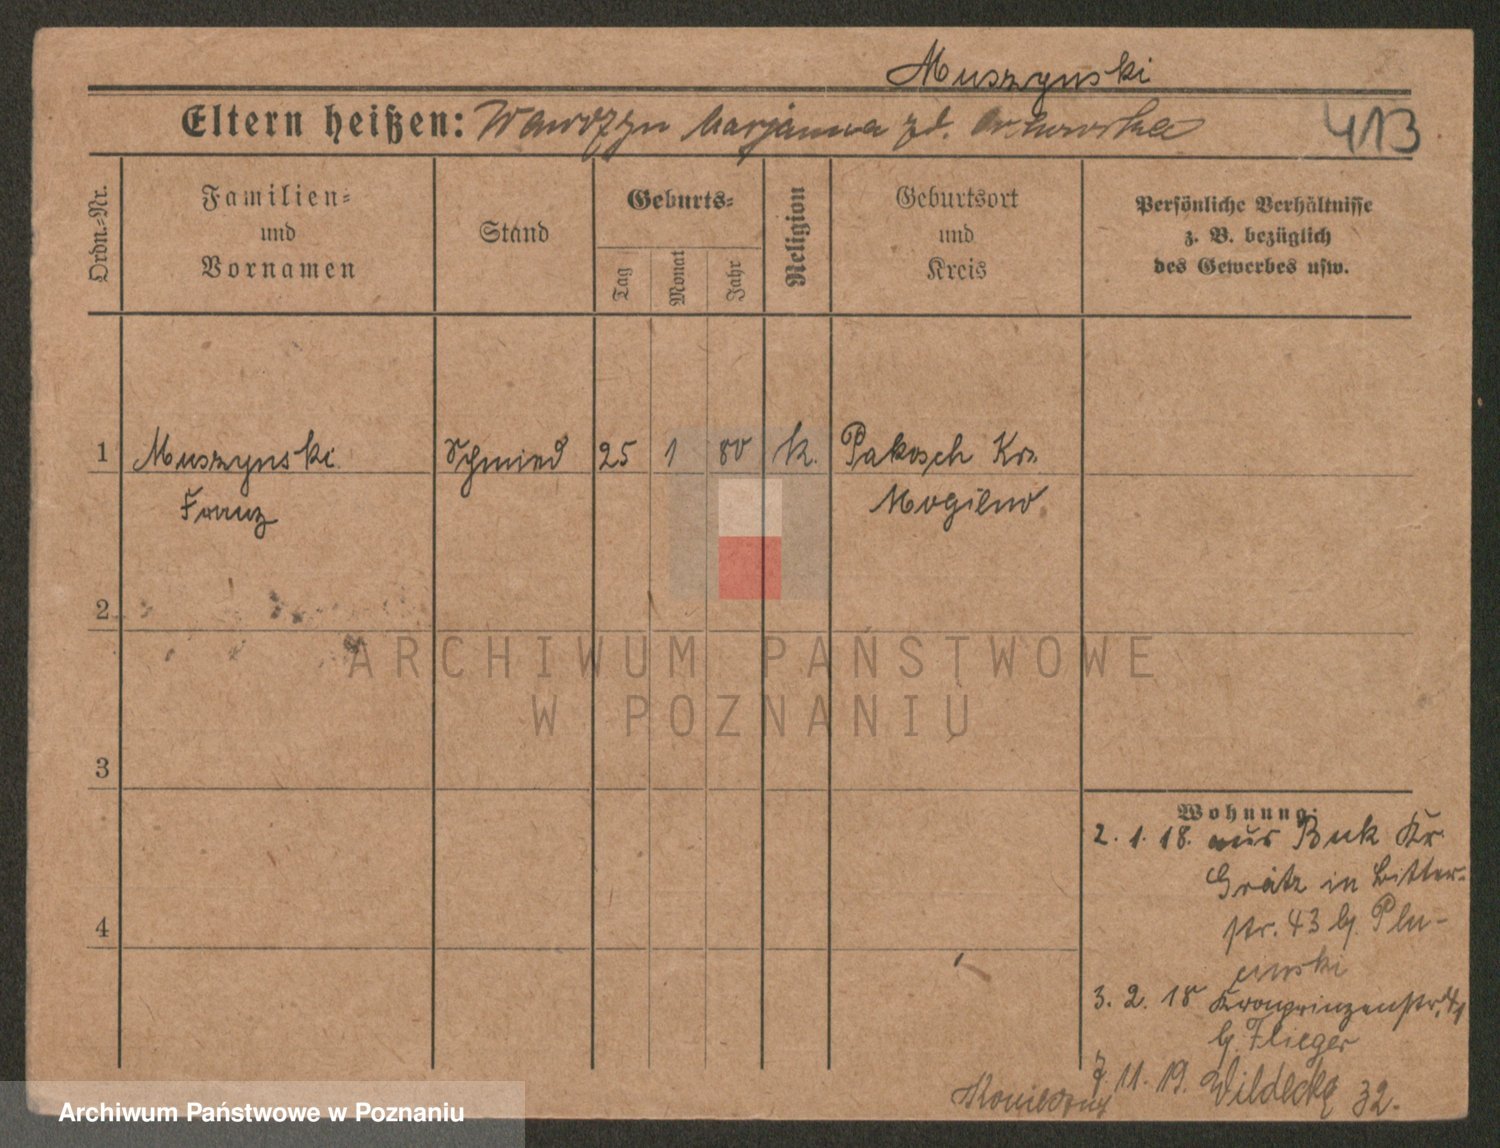 Muszynski
Eltern heißen: Wawrzyn Marjanna zd.
413
Ordn.=Nr.
Familien=
und
Vornamen
Stand
Geburts=
Tag
Monat
Jahr
Religion
Geburtsort
und
Kreis
Persönliche Verhältnisse
z. B. bezüglich
des Gewerbes usw.
1 Muszynski Schmied 25 1 80 k. Pakosch Kr.
Franz Mogilno.
2
3
4
ARCHIWUM PAŃSTWOWE
W POZNANIU
Wohnung:
2. 1. 18. aus Buk Kr
Grätz in Bitter-
str. 43 b. Plu-
cinski
3. 2. 18 Kronprinzenstr.
b. Flieger
11. 19. Wildecke 32.
Archiwum Państwowe w Poznaniu